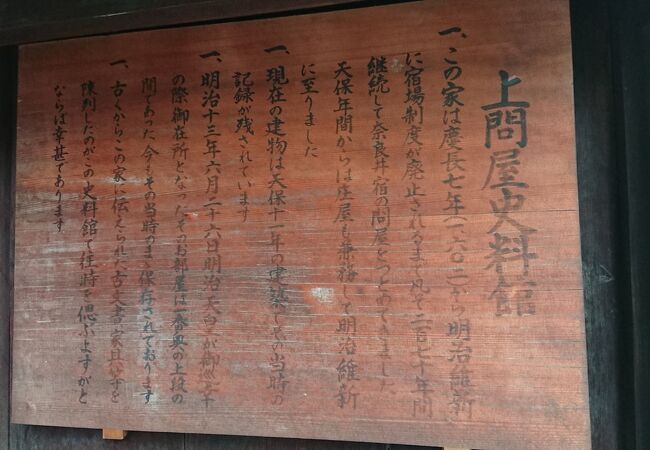 上問屋史料館
一、この家は慶長七年(一、六〇二)から明治維新
に宿場制度が廃止されるまで凡そ二百七十年間
継続して奈良井宿の問屋をつとめてきました
天保年間からは庄屋も兼務して明治維新
に至りました
一、現在の建物は天保十一年の建築でその当時の
記録が残されています
一、明治十三年六月二十六日明治天皇が御巡幸
の際御在所となったそのお部屋は一番奥の上段の
間であった 今もその当時のまゝ保存されております
一、古くからこの家に伝えられた古文書家具等を
陳列したのがこの史料館で往時を偲ぶよすがと
ならば幸甚であります